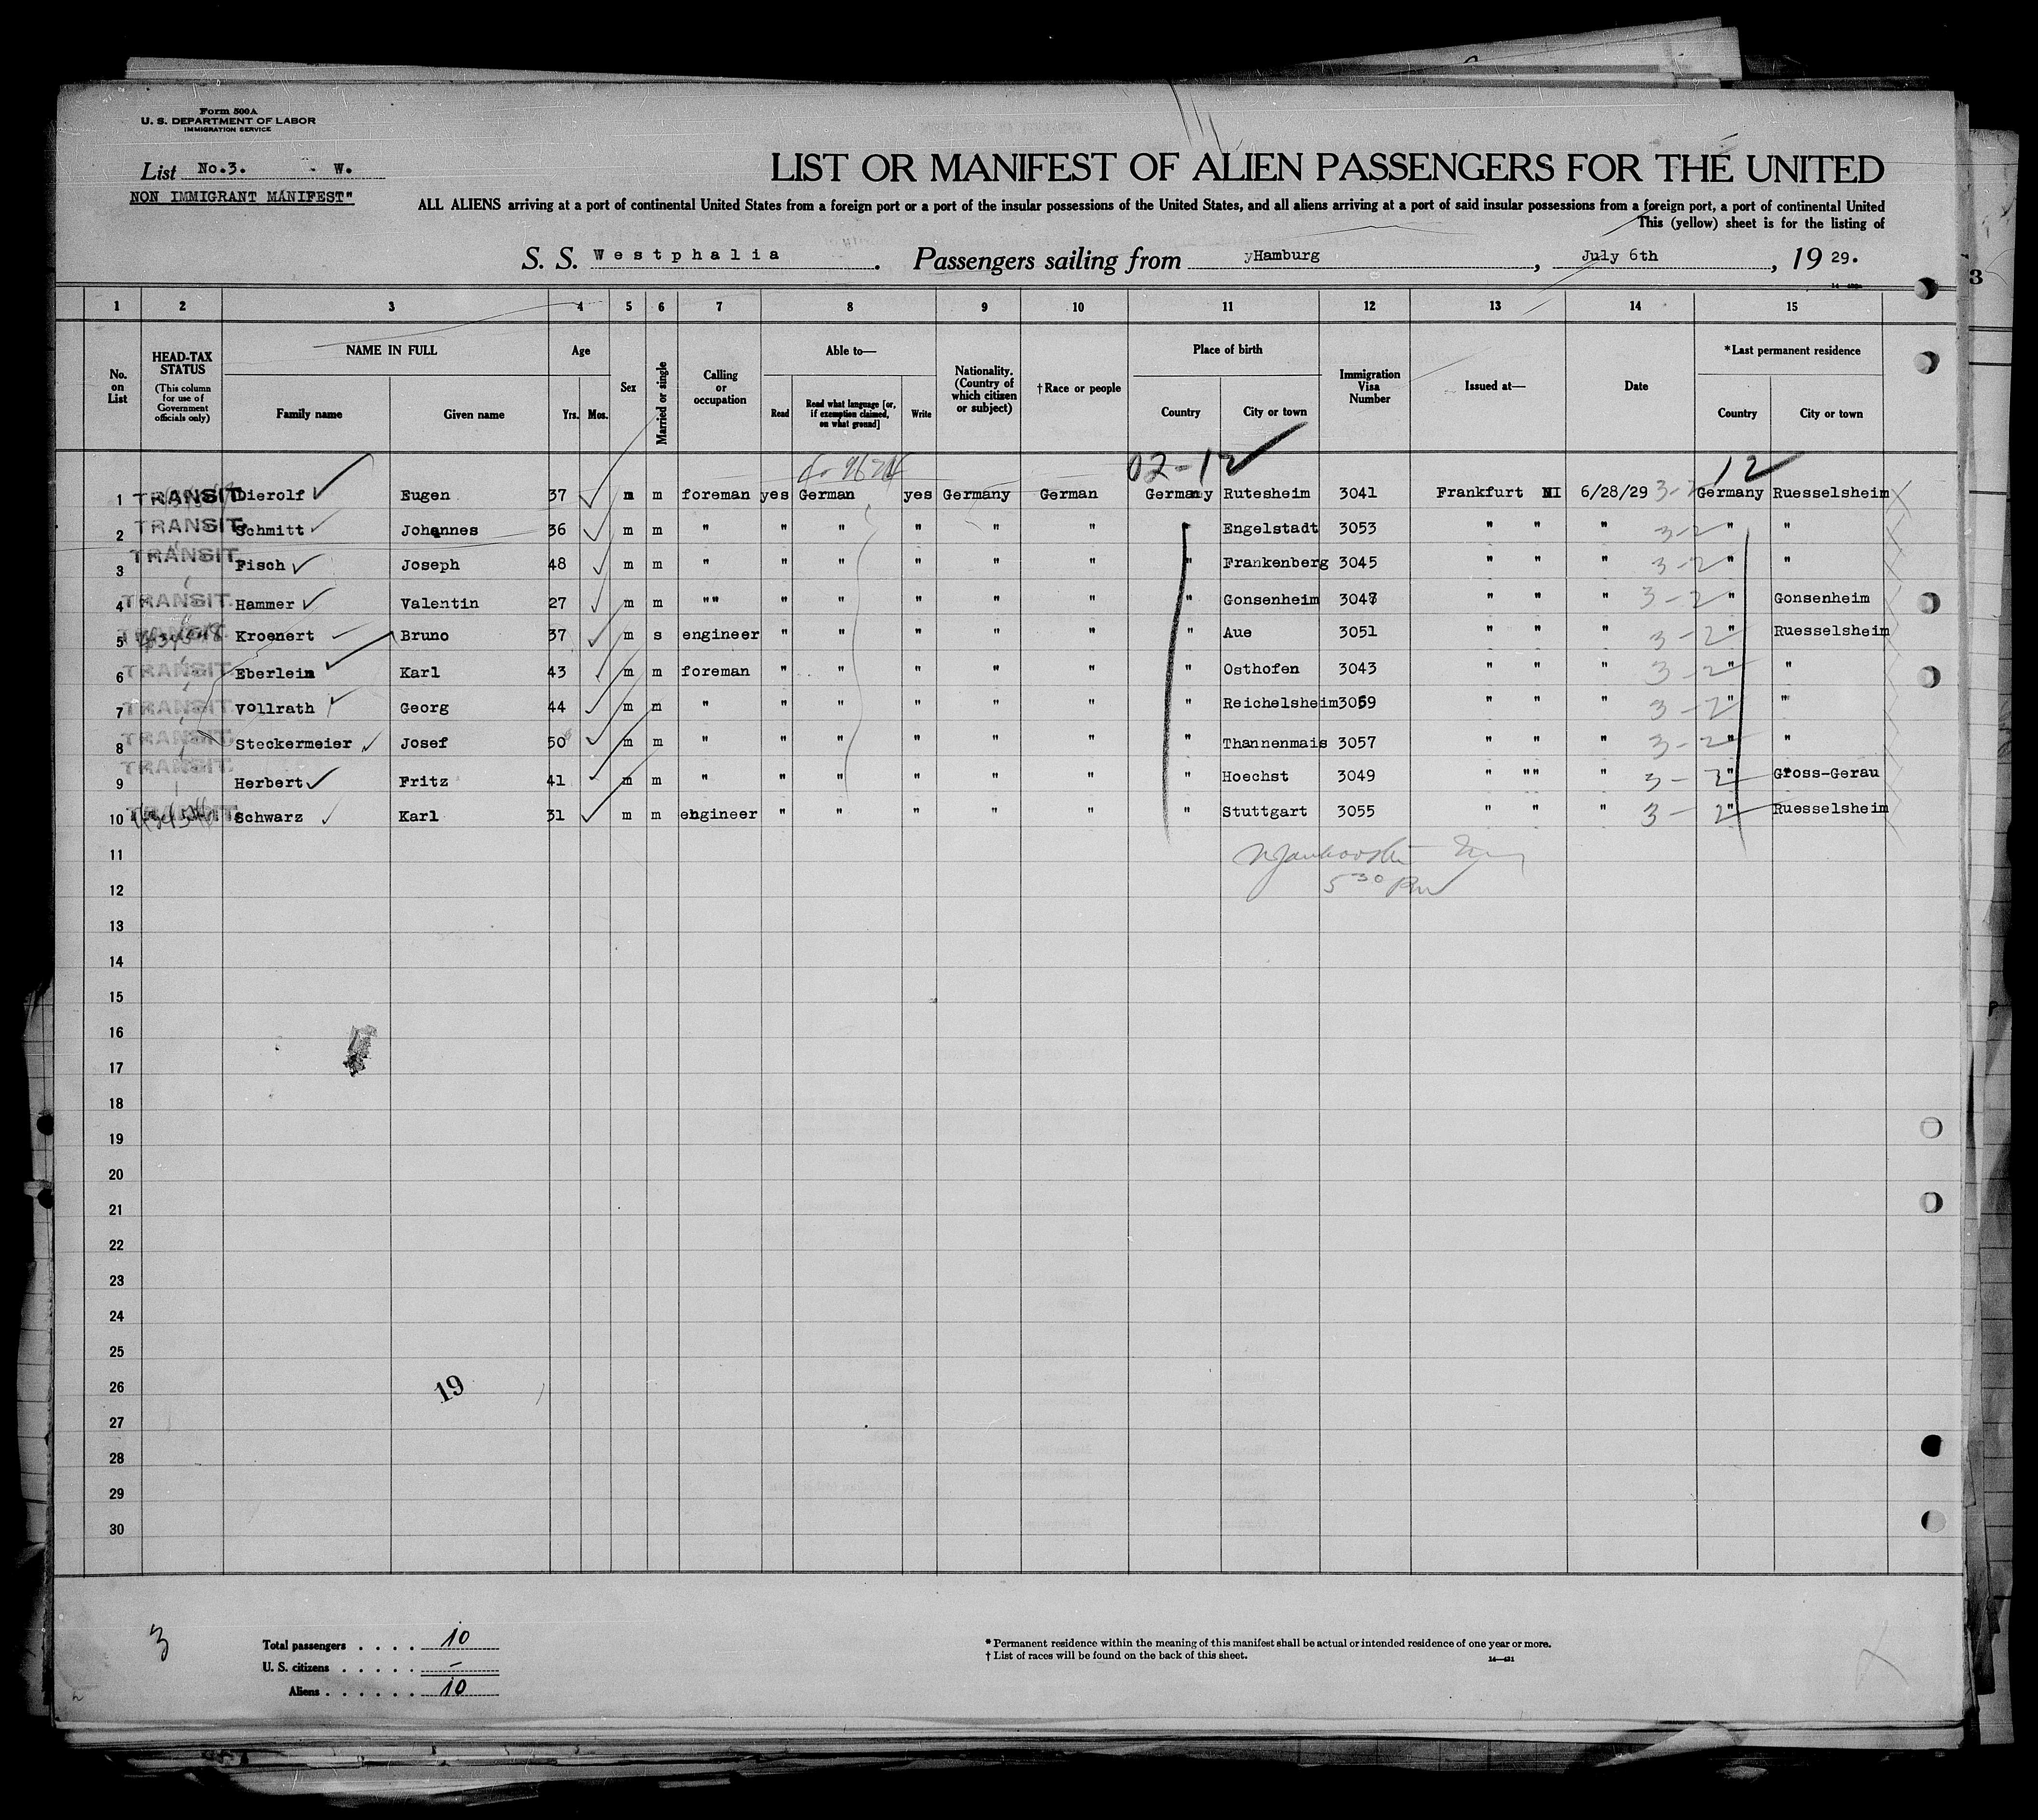 Form 500A
U. S. DEPARTMENT OF LABOR
IMMIGRATION SERVICE
List No.3. - W.
NON IMMIGRANT MANIFEST"
LIST OR MANIFEST OF ALIEN PASSENGERS FOR THE UNITED
ALL ALIENS arriving at a port of continental United States from a foreign port or a port of the insular possessions of the United States, and all aliens arriving at a port of said insular possessions from a foreign port, a port of continental United
This (yellow) sheet is for the listing of
S. S. Westphalia. Passengers sailing from yHamburg, July 6th, 19 29.
3
1 2 3 4 5 6 7 8 9 10 11 12 13 14 15
No. on List HEAD-TAX STATUS (This column for use of Government officials only) NAME IN FULL Family name Given name Age Yrs. Mos. Sex Married or single Calling or occupation Able to— Read Read what language [or, if exemption claimed, on what ground] Write Nationality. (Country of which citizen or subject) † Race or people Place of birth Country City or town Immigration Visa Number Issued at— Date *Last permanent residence Country City or town
02-12 12
1 TRANSIT Dierolf Eugen 37 m m foreman yes German yes Germany German Germany Rutesheim 3041 Frankfurt 6/28/29 3-2 Germany Ruesselsheim
2 TRANSIT. Schmitt Johannes 36 m m " " " " " " " Engelstadt 3053 " " " 3-2 " "
3 TRANSIT. Fisch Joseph 48 m m " " " " " " " Frankenberg 3045 " " " 3-2 " "
4 TRANSIT. Hammer Valentin 27 m m "" " " " " " " Gonsenheim 3047 " " " 3-2 " Gonsenheim
5 TRANSIT. Kroenert Bruno 37 m s engineer " " " " " " Aue 3051 " " " 3-2 " Ruesselsheim
6 TRANSIT. Eberlein Karl 43 m m foreman " " " " " " Osthofen 3043 " " " 3-2 " "
7 TRANSIT. Vollrath Georg 44 m m " " " " " " " Reichelsheim 3059 " " " 3-2 " "
8 TRANSIT. Steckermeier Josef 50 m m " " " " " " " Thannenmais 3057 " " " 3-2 " "
9 TRANSIT. Herbert Fritz 41 m m " " " " " " " Hoechst 3049 " "" " 3-2 " Gross-Gerau
10 TRANSIT. Schwarz Karl 31 m m engineer " " " " " " Stuttgart 3055 " " " 3-2 " Ruesselsheim
11
5 30 PM
12
13
14
15
16
17
18
19
20
21
22
23
24
25
26
19
27
28
29
30
3
Total passengers . . . . 10
U. S. citizens . . . . . –
Aliens . . . . . . 10
* Permanent residence within the meaning of this manifest shall be actual or intended residence of one year or more.
† List of races will be found on the back of this sheet.